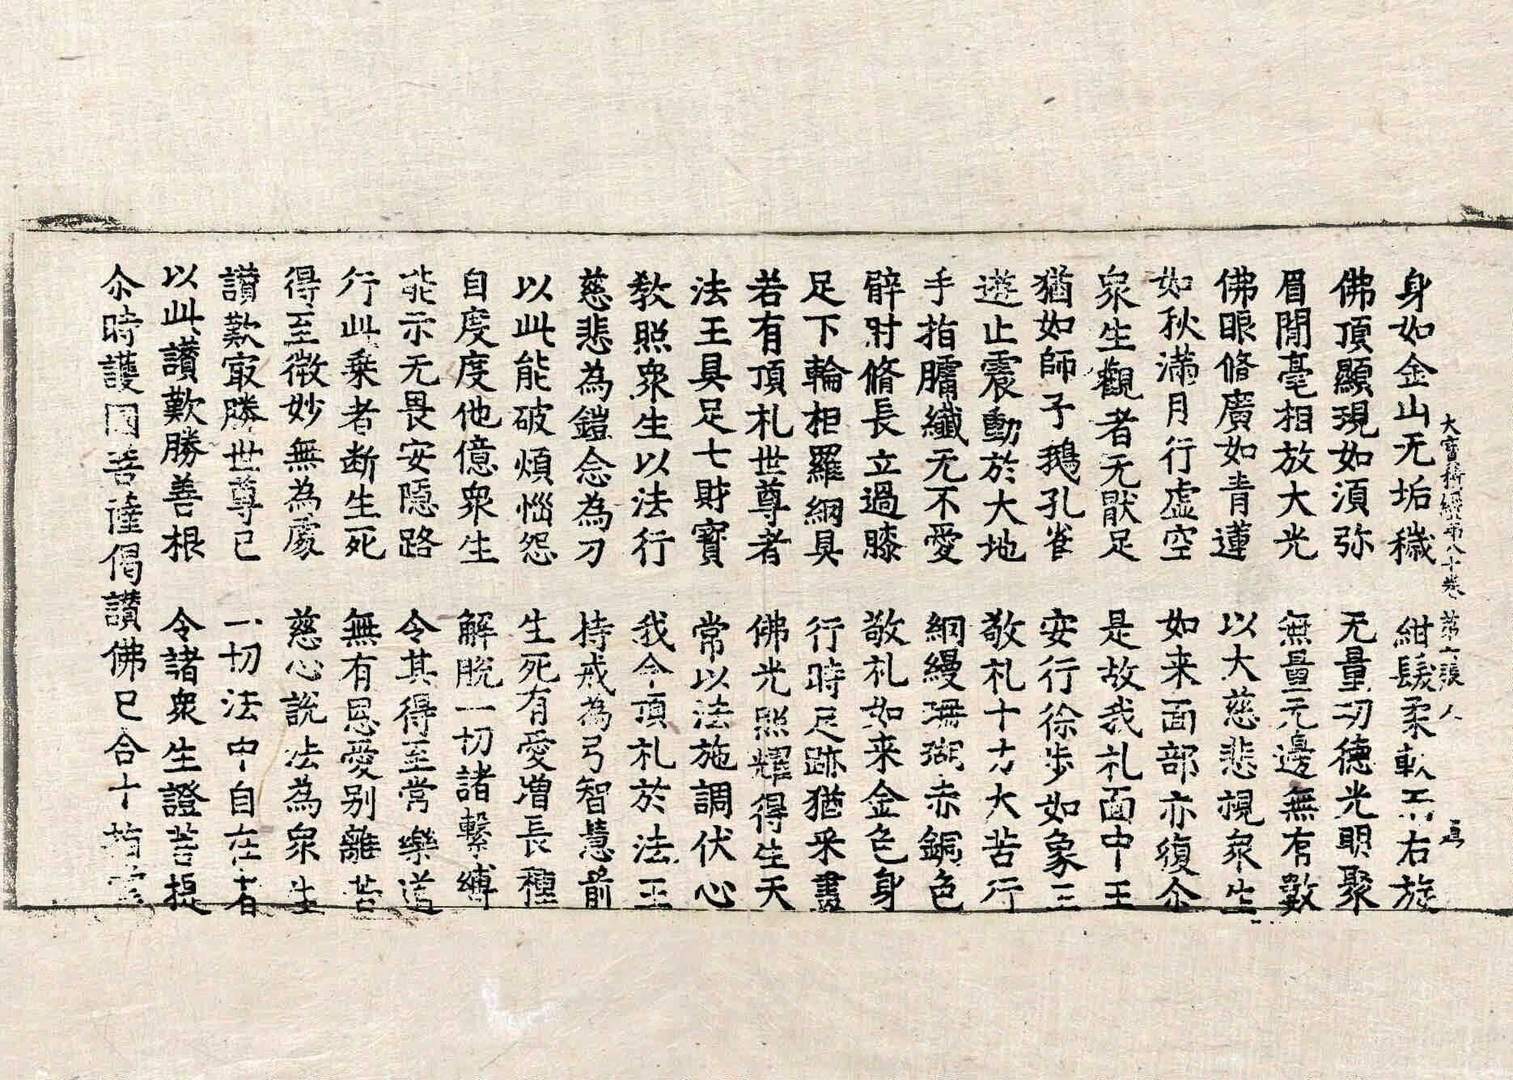 大寶積經第八十卷 第二張 人
身如金山无垢穢 紺髮柔軟而右旋
佛頂顯現如湏弥 无量功德光明聚
眉間毫相放大光 無量无邊無有數
佛眼脩廣如青蓮 以大慈悲視衆生
如秋滿月行虛空 如来面部亦復尒
衆生觀者无猒足 是故我礼面中王
猶如師子鵝孔雀 安行徐步如象王
遊止震動於大地 敬礼十力大苦行
手指𦟛纖无不愛 網縵珊瑚赤銅色
臂肘脩長立過膝 敬礼如来金色身
足下輪相羅網具 行時足跡猶釆畫
若有頂礼世尊者 佛光照耀得生天
法王具足七財寶 常以法施調伏心
教照衆生以法行 我今頂礼於法王
慈悲為鎧念為刀 持戒為弓智慧前
以此能破煩惱怨 生死有愛增長種
自度度他億衆生 解脫一切諸繫縛
能示无畏安隱路 令其得至常樂道
行此乗者断生死 無有恩愛别離苦
得至微妙無為處 慈心說法為衆生
讃歎㝡勝世尊已 一切法中自在者
以此讃歎勝善根 令諸衆生證菩提
尒時護國菩薩偈讃佛已合十指掌